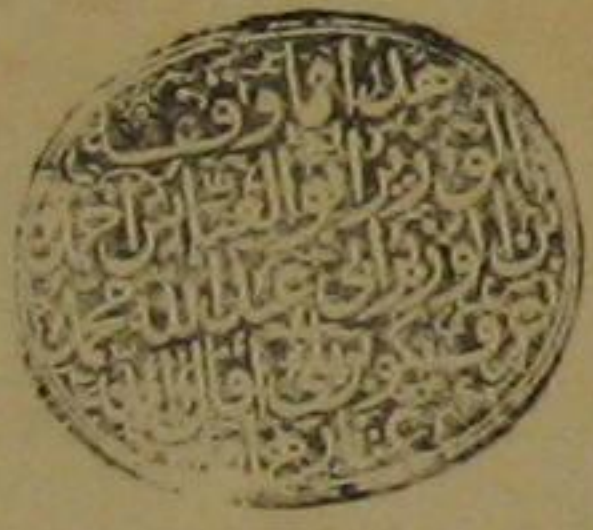 هذا ما وقف
الوزير ابو العباس احمد
بن الوزير ابي عبد الله محمد
عرف بكوبريلى اقال الله
عثارهما